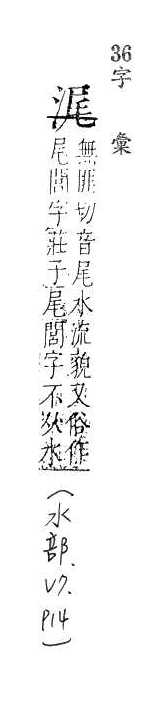 36字彙
浘
無匪切音尾水流貌又俗作
尾閭字莊子尾閭字不从水
(水部.V7.P14)